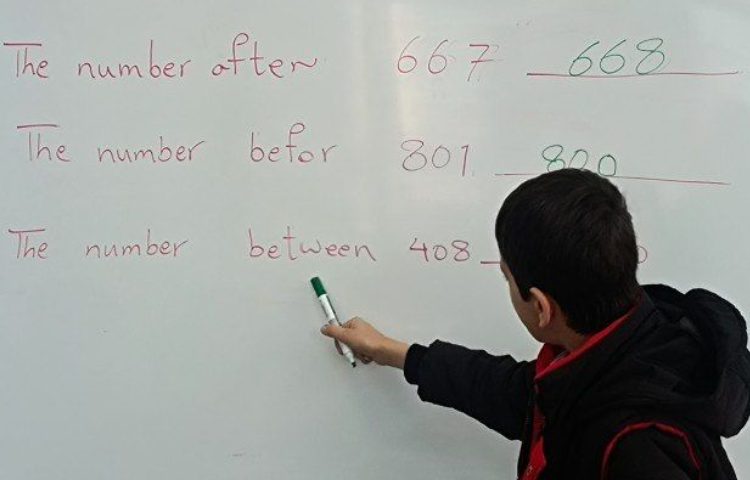 The number after 667 668
The number befor 801 800
The number between 408